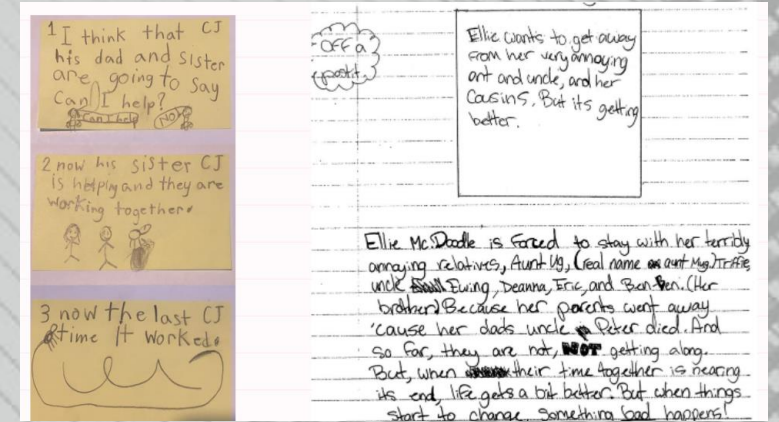 1 I think that CJ
his dad and sister
are going to say
Can I help?
Can I help
NO
2 now his sister CJ
is helping and they are
working together.
3 now the last CJ
time it worked.
OFF a
postit
Ellie wants to get away
from her very annoying
ant and uncle, and her
Cousins. But its getting
better.
Ellie Mc.Doodle is forced to stay with her terribly
annoying relatives, Aunt Ug, (real name aunt Mug.) Triffie,
uncle Ewing, Deanna, Eric, and Ben-Ben. (Her
brother) Because her parents went away
'cause her dads uncle Peter died. And
so far, they are not, NOT getting along.
But, when their time together is nearing
its end, life gets a bit better. But when things
start to change, something bad happens!